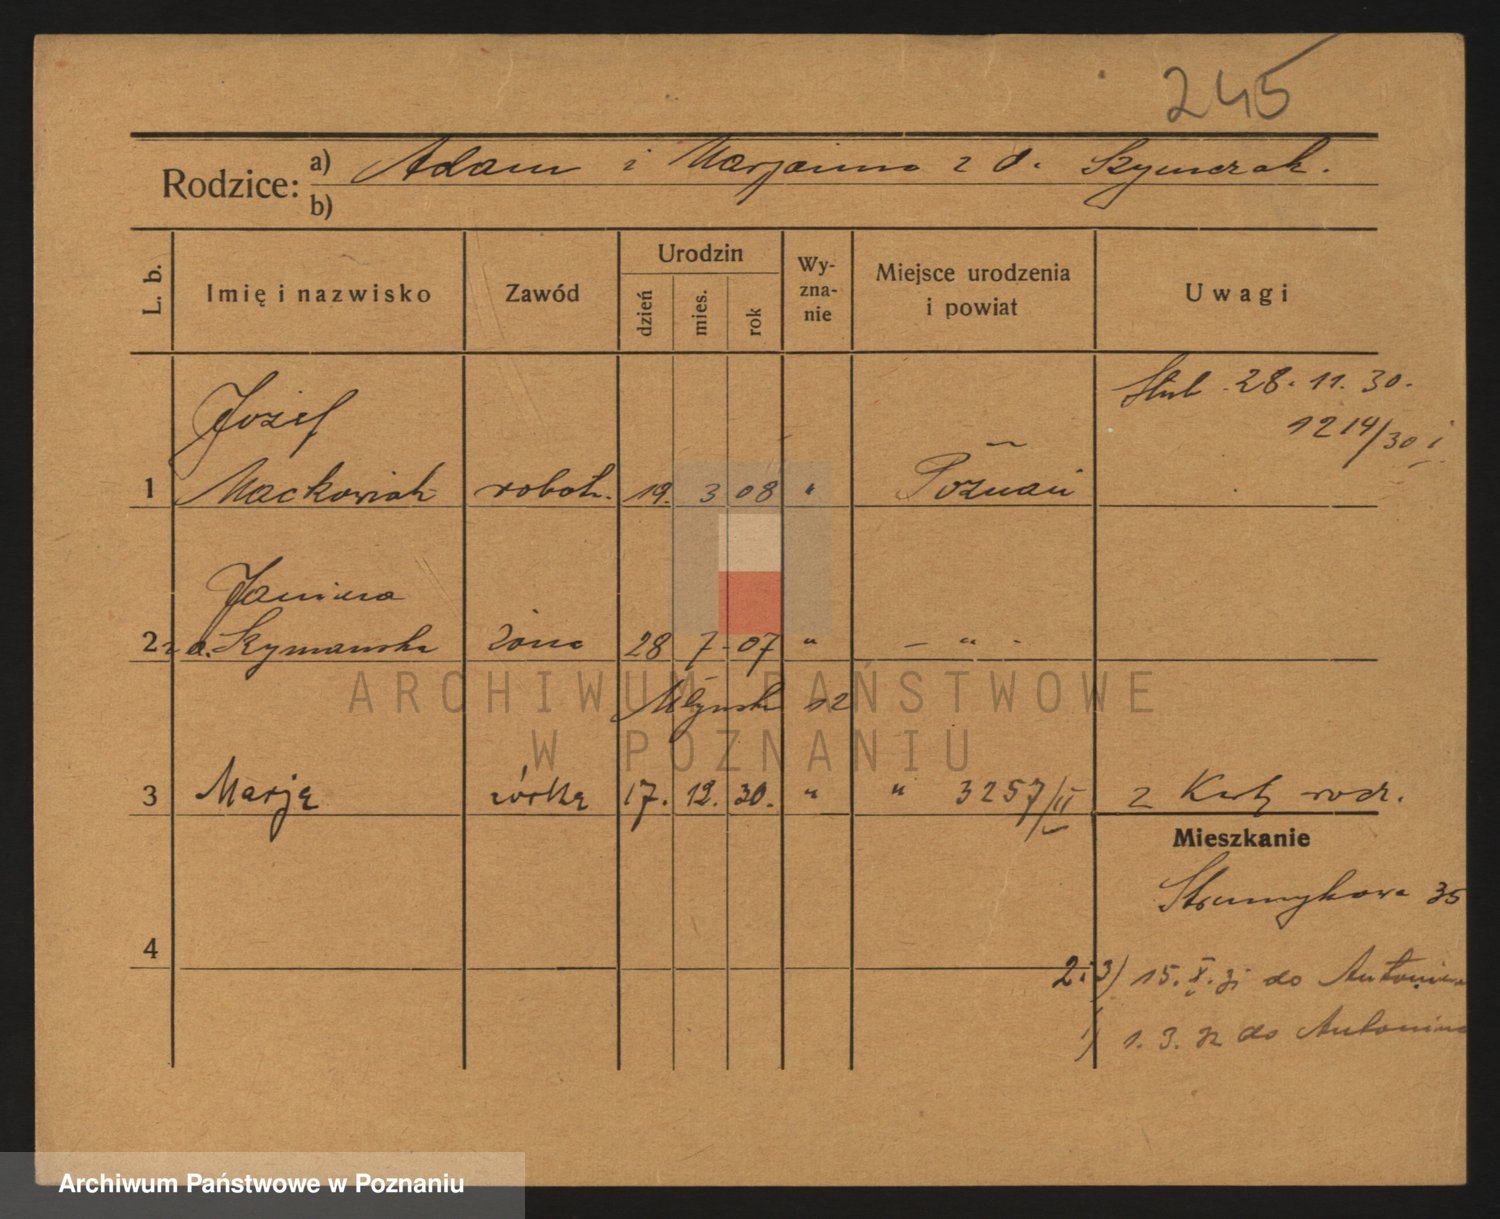 245
Rodzice: a) Adam i Marjanna z d. Szymczak.
b)
L. b. Imię i nazwisko Zawód Urodzin dzień mies. rok Wyzna-nie Miejsce urodzenia i powiat Uwagi
Józef
Ślub 28. 11. 30.
1214/30 i
1 Maćkowiak robotn. 19. 3 08 " Poznań
Janina
2 z d. Szymańska żona 28 7 - 07 " - " -
Młyńska 12
3 Marja córka 17. 12. 30. " " 3257/II z Karty rodz.
Mieszkanie
Strumykowa 35
4
2.i3) 15. X. 31 do Antonina
1) 1. 3. 32 do Antonina
ARCHIWUM PAŃSTWOWE
W POZNANIU
Archiwum Państwowe w Poznaniu